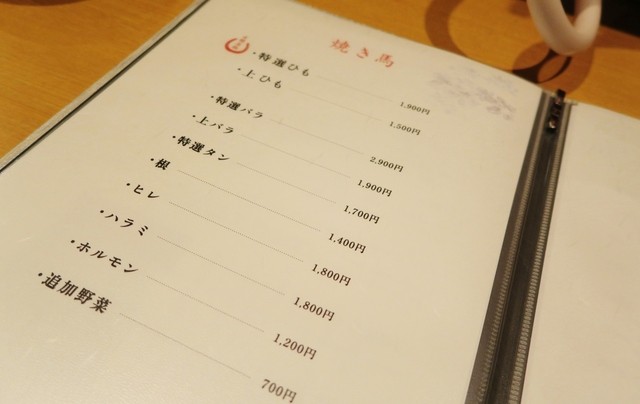 焼き馬
・特選ひも 1,900円
・上ひも 1,500円
・特選バラ 2,900円
・上バラ 1,900円
・特選タン 1,700円
・根 1,400円
・ヒレ 1,800円
・ハラミ 1,800円
・ホルモン 1,200円
・追加野菜 700円